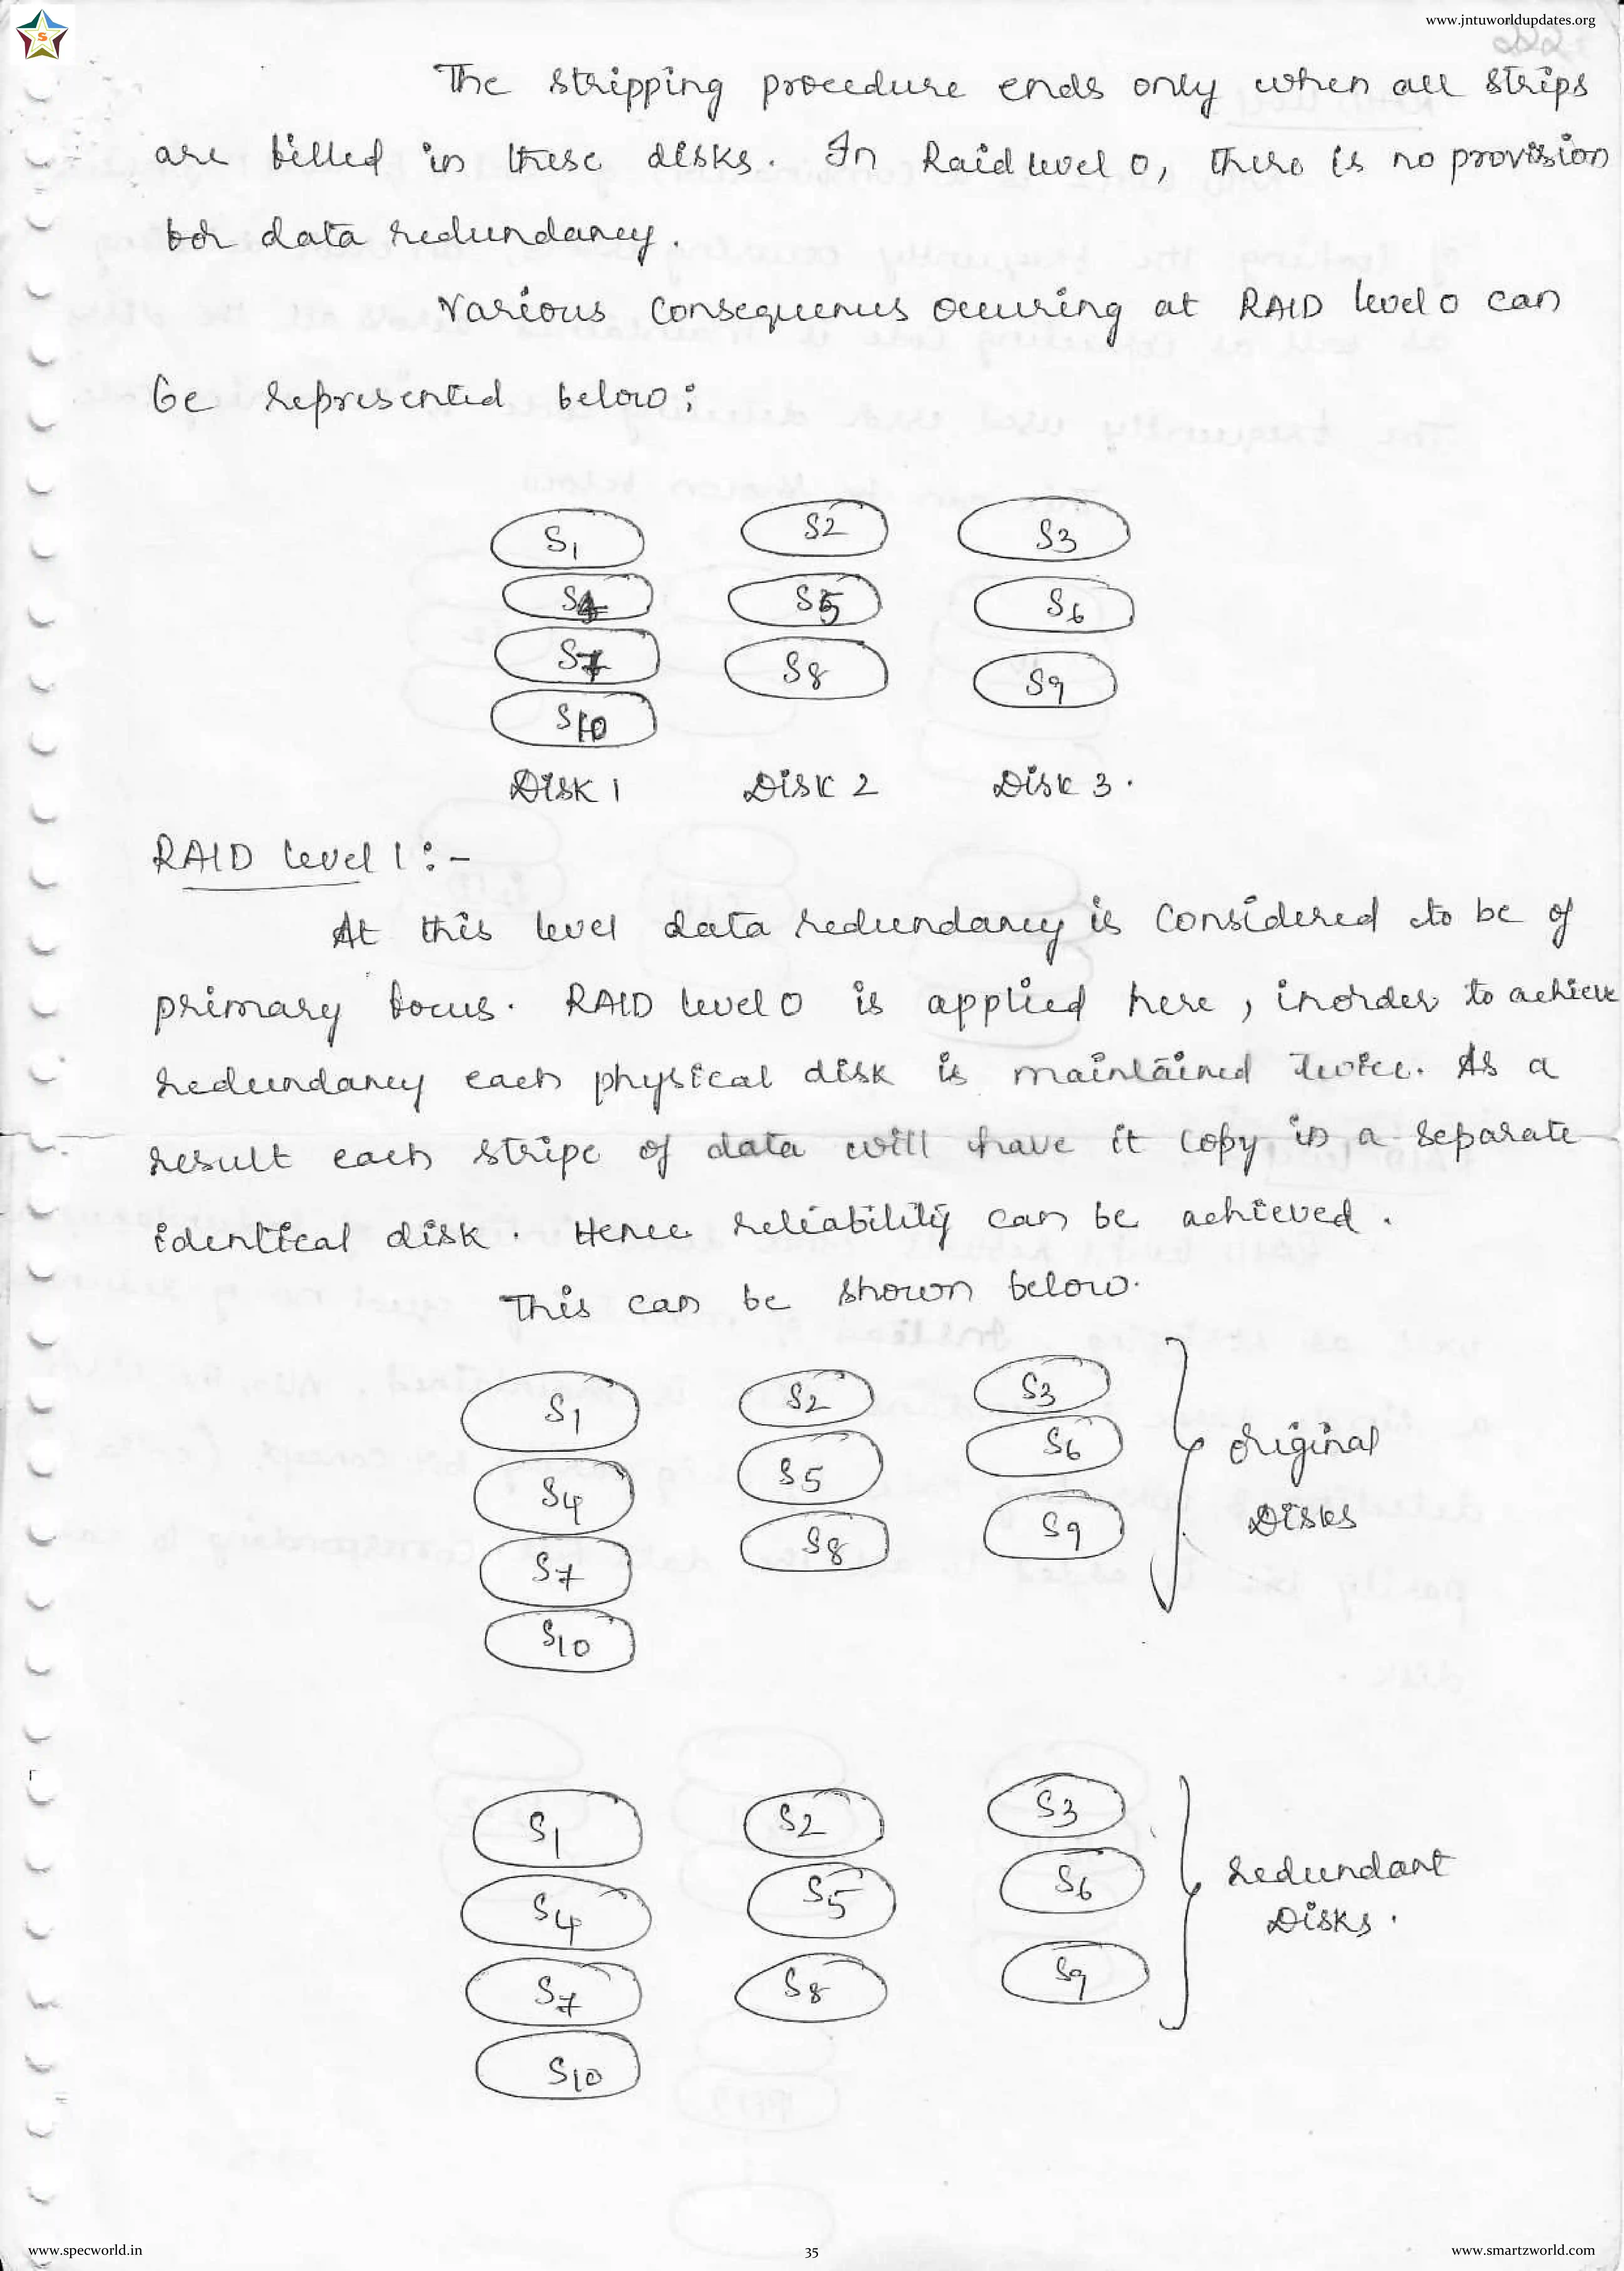 www.jntuworldupdates.org
The stripping procedure ends only when all strips
are filled in these disks. In Raid level 0, there is no provision
for data redundancy.
Various Consequences occuring at RAID level 0 can
be represented below:
S1 S2 S3
S4 S5 S6
S7 S8 S9
S10
Disk 1 Disk 2 Disk 3.
RAID level 1:-
At this level data redundancy is considered to be of
primary focus. RAID level 0 is applied here, inorder to achieve
redundancy each physical disk is maintained twice. As a
result each stripe of data will have it copy in a separate
identical disk. Hence reliability can be achieved.
This can be shown below.
S1 S2 S3
S4 S5 S6
S7 S8 S9
S10
original
Disks
S1 S2 S3
S4 S5 S6
S7 S8 S9
S10
redundant
Disks.
www.specworld.in 35 www.smartzworld.com